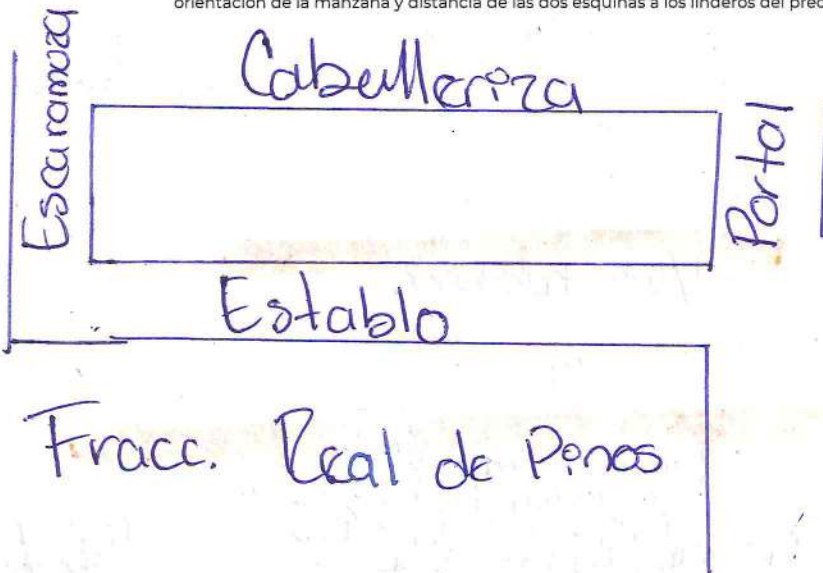 orientación de la manzana y distancia de las dos esquinas a los linderos del pred
Caballeriza
Escaramuza
Portal
Establo
Fracc. Real de Pinos